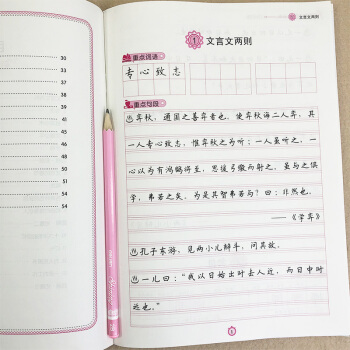 30
33
35
38
39
41
45
48
50
51
54
54
文言文两则
1 文言文两则
重点词语
专心致志
重点句段
弈秋，通国之善弈者也。使弈秋诲二人弈，其
一人专心致志，惟弈秋之为听；一人虽听之，一
心以为有鸿鹄将至，思援弓缴而射之。虽与之俱
学，弗若之矣。为是其智弗若与？曰：非然也。
——《学弈》
孔子东游，见两小儿辩斗，问其故。
一儿曰：“我以日始出时去人近，而日中时
远也。”
1